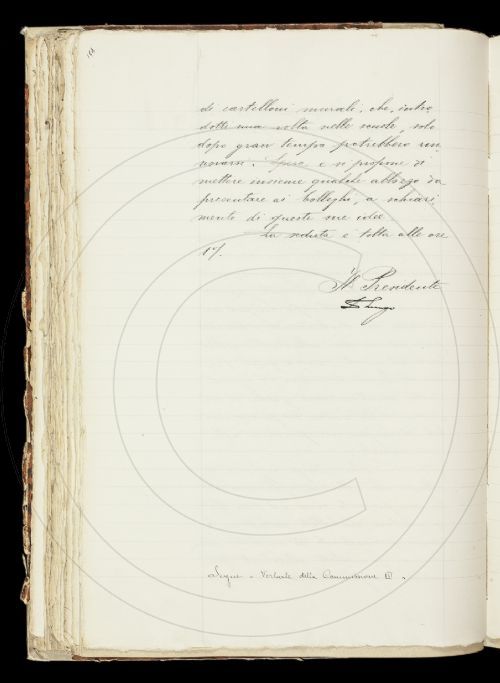 di cartelloni murali, che, intro
dotte una volta nelle scuole, solo
dopo gran tempo potrebbero rin
novarsi. Spera e si propone di
mettere insieme qualche abbozzo da
presentare ai Colleghi, a schiari
mento di queste sue idee.
La seduta è tolta alle ore
17.
Il Presidente
Segue - Verbale della Commissione III.